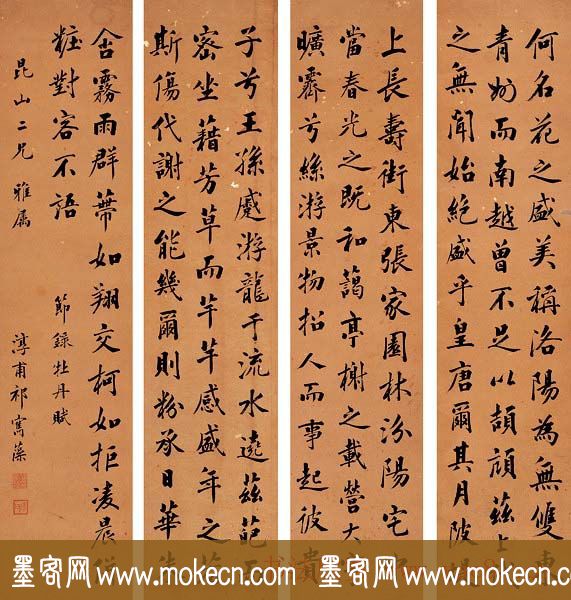 何名花之盛美稱洛陽為無雙東
青州而南越曾不足以頡頏茲上
之無聞始絕盛乎皇唐爾其月陂
上長壽街東張家園林汾陽宅
當春光之既和藹亭榭之載營大
曠霽兮絲游景物招人而事起彼貴
子兮王孫蹙游龍于流水遶茲葩
密坐藉芳草而芊芊感盛年之
斯傷代謝之能幾爾則粉承日華
含霧雨群蒂如翔交柯如拒凌晨
粧對客不語
節錄牡丹賦
昆山二兄雅屬
淳甫祁寯藻
墨客网www.mokecn.com
墨客网www.mokecn.com